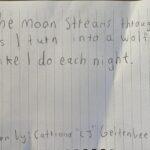 he moon streams throug
s I turn into a wolf
ike I do each night.
en by: Cattriona "CJ" Geitenbee